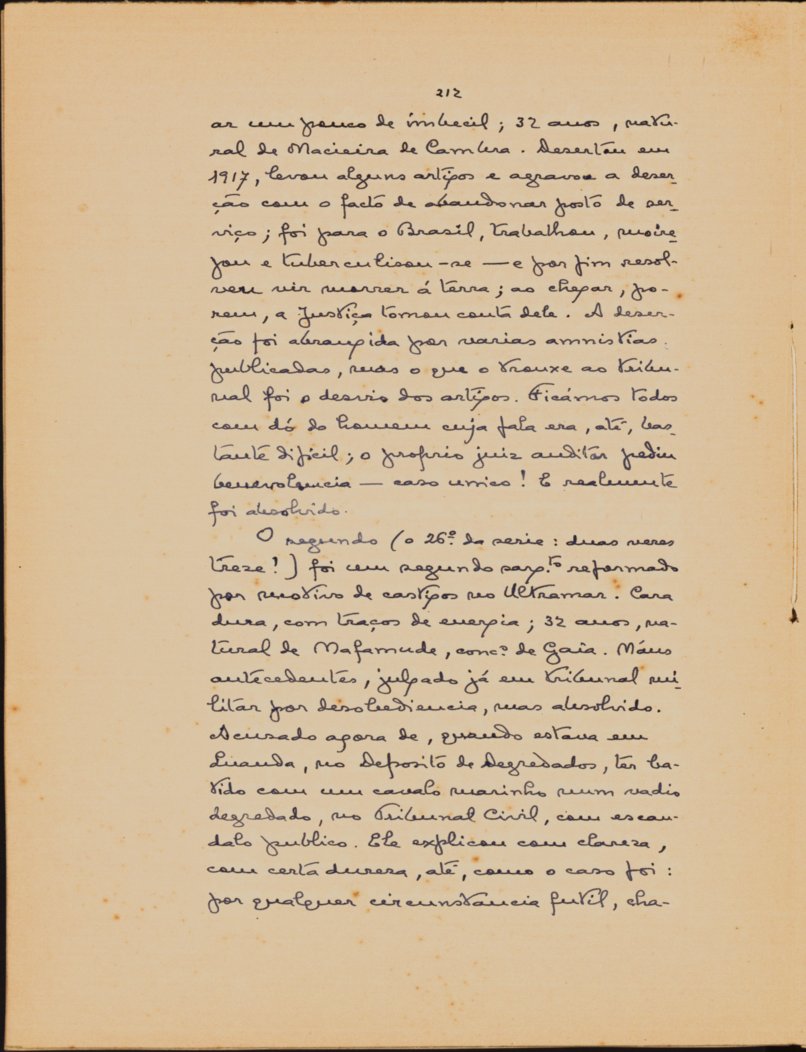 212
ar um pouco de imbecil; 32 anos, natu-
ral de Macieira de Cambra. Desertou em
1917, levou alguns artigos e agravou a deser-
ção com o facto de abandonar posto de ser-
viço; foi para o Brasil, trabalhou, moire-
jou e tuberculisou-se — e por fim resol-
veu vir morrer á terra; ao chegar, po-
rem, a Justiça tomou conta dele. A deser-
ção foi abrangida por varias amnistias
publicadas, mas o que o trouxe ao tribu-
nal foi o desvio dos artigos. Ficámos todos
com dó do homem cuja fala era, até, bas-
tante dificil; o proprio juiz auditor pediu
benevolencia — caso unico! E realmente
foi absolvido.
O segundo (o 26.º da serie: duas veses
treze!) foi um segundo sarg.to reformado
por motivo de castigos no Ultramar. Cara
dura, com traços de energia; 32 anos, na-
tural de Mafamude, conc.º de Gaia. Máus
antecedentes, julgado já em tribunal mi-
litar por desobediencia, mas absolvido.
Acusado agora de, quando estava em
Luanda, no Deposito de Degredados, ter ba-
tido com um cavalo marinho num vadio
degredado, no Tribunal Civil, com escan-
dalo publico. Ele explicou com clareza,
com certa dureza, até, como o caso foi:
por qualquer circunstancia futil, cha-